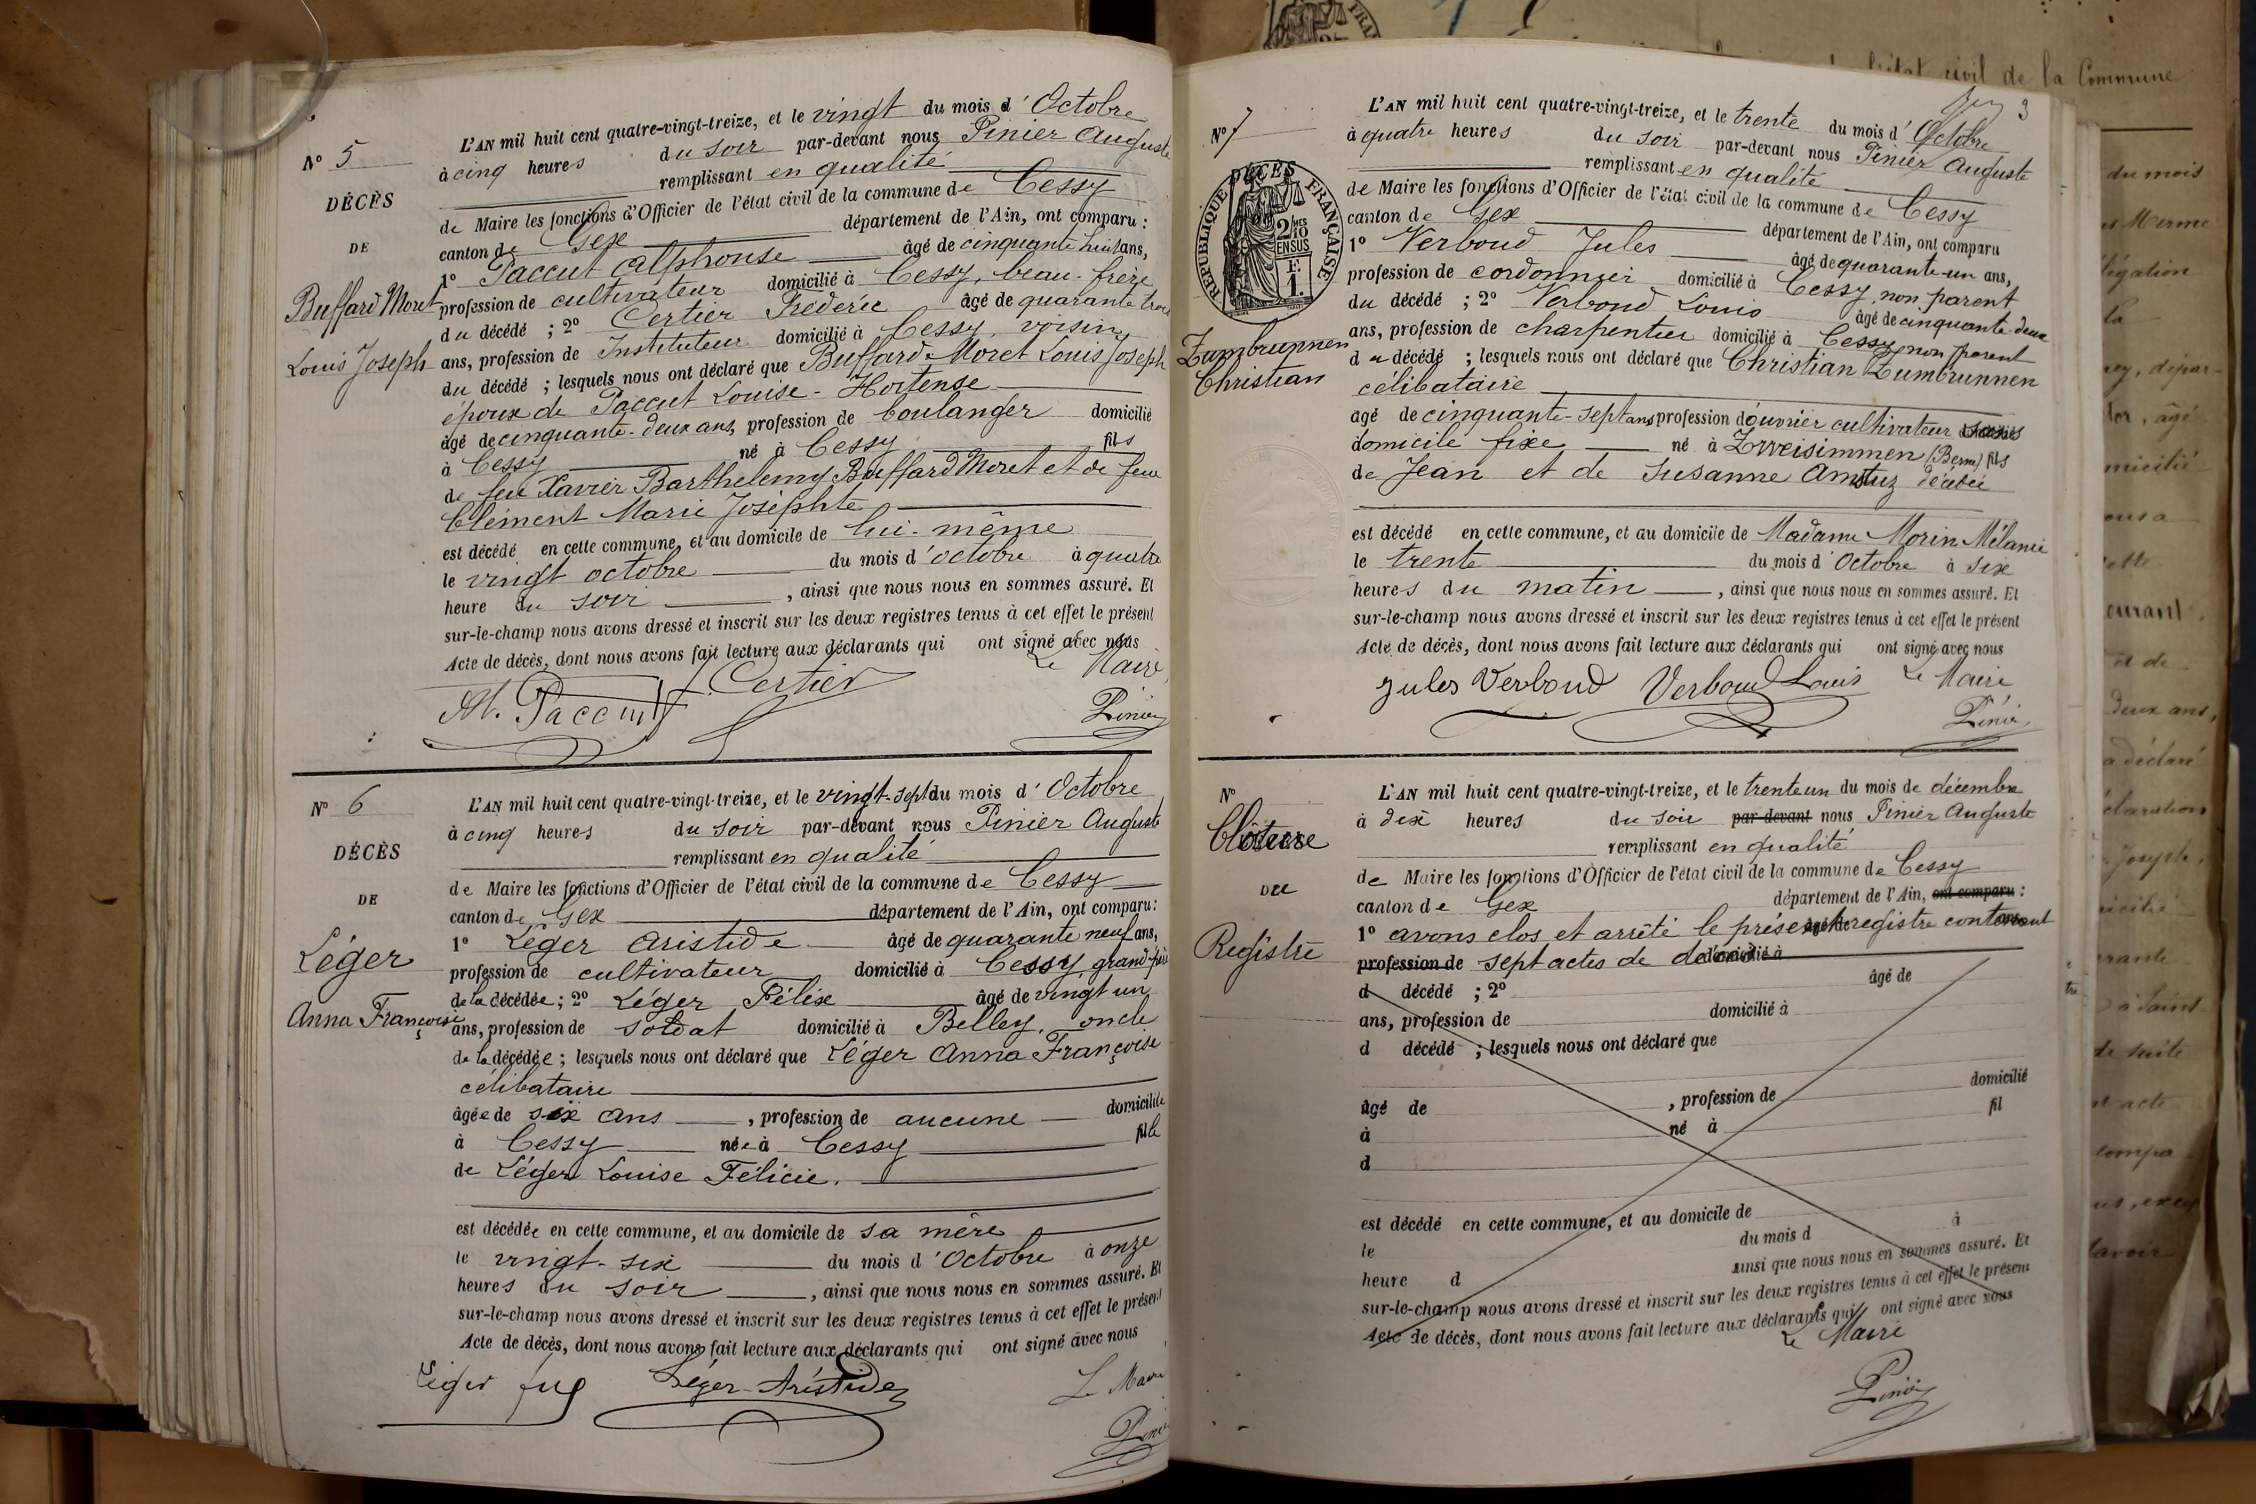 N° 5
DÉCÈS
DE
Buffard Moret
Louis Joseph
L'AN mil huit cent quatre-vingt-treize, et le vingt du mois d'Octobre
à cinq heures du soir par-devant nous Pinier Auguste
remplissant en qualité
de Maire les fonctions d'Officier de l'état civil de la commune de Cessy
canton de Gex département de l'Ain, ont comparu :
1° Paccut Alphonse âgé de cinquante huit ans,
profession de cultivateur domicilié à Cessy, beau-frère
du décédé ; 2° Certier Fréderic âgé de quarante trois
ans, profession de Instituteur domicilié à Cessy, voisin
du décédé ; lesquels nous ont déclaré que Buffard-Moret Louis Joseph
époux de Paccut Louise-Hortense
âgé de cinquante-deux ans, profession de boulanger domicilié
à Cessy né à Cessy fils
de feu Xavier Barthelemy Buffard Moret et de feue
Clément Marie Joséphte
est décédé en cette commune, et au domicile de lui-même
le vingt octobre du mois d'octobre à quatre
heure du soir , ainsi que nous nous en sommes assuré. Et
sur-le-champ nous avons dressé et inscrit sur les deux registres tenus à cet effet le présent
Acte de décès, dont nous avons fait lecture aux déclarants qui ont signé avec nous
Le Maire,
Al. Paccut Certier Pinier
N° 6
DÉCÈS
DE
Léger
Anna Françoise
L'AN mil huit cent quatre-vingt-treize, et le vingt-sept du mois d'Octobre
à cinq heures du soir par-devant nous Pinier Auguste
remplissant en qualité
de Maire les fonctions d'Officier de l'état civil de la commune de Cessy
canton de Gex département de l'Ain, ont comparu :
1° Léger Aristide âgé de quarante neuf ans,
profession de cultivateur domicilié à Cessy, grand père
de la décédée ; 2° Léger Félix âgé de vingt un
ans, profession de soldat domicilié à Belley, oncle
de la décédée ; lesquels nous ont déclaré que Léger Anna Françoise
célibataire
âgée de six ans , profession de aucune domiciliée
à Cessy née à Cessy fille
de Léger Louise Félicie.
est décédée en cette commune, et au domicile de sa mère
le vingt-six du mois d'Octobre à onze
heures du soir , ainsi que nous nous en sommes assuré. Et
sur-le-champ nous avons dressé et inscrit sur les deux registres tenus à cet effet le présent
Acte de décès, dont nous avons fait lecture aux déclarants qui ont signé avec nous
Léger Léger Aristide Le Maire
Pinier
3
N° 7
DÉCÈS
RÉPUBLIQUE FRANÇAISE
2/10 MES EN SUS
1 F.
Zumbrunnen
Christian
L'AN mil huit cent quatre-vingt-treize, et le trente du mois d'Octobre
à quatre heures du soir par-devant nous Pinier Auguste
remplissant en qualité
de Maire les fonctions d'Officier de l'état civil de la commune de Cessy
canton de Gex département de l'Ain, ont comparu
1° Verboud Jules âgé de quarante-un ans,
profession de cordonnier domicilié à Cessy, non parent
du décédé ; 2° Verboud Louis âgé de cinquante-deux
ans, profession de charpentier domicilié à Cessy, non parent
du décédé ; lesquels nous ont déclaré que Christian Zumbrunnen
célibataire
agé de cinquante-sept ans, profession d'ouvrier cultivateur sans
domicile fixe né à Zweisimmen (Berne) fils
de Jean et de Susanne Amstuz décédée
est décédé en cette commune, et au domicile de Madame Morin Mélanie
le trente du mois d'Octobre à six
heures du matin , ainsi que nous nous en sommes assuré. Et
sur-le-champ nous avons dressé et inscrit sur les deux registres tenus à cet effet le présent
Acte de décès, dont nous avons fait lecture aux déclarants qui ont signé avec nous
Jules Verboud Verboud Louis Le Maire
Pinier
N°
Clôture
du
Registre
L'AN mil huit cent quatre-vingt-treize, et le trente un du mois de décembre
à dix heures du soir par-devant nous Pinier Auguste
remplissant en qualité
de Maire les fonctions d'Officier de l'état civil de la commune de Cessy
canton de Gex département de l'Ain, ont comparu :
1° avons clos et arrêté le présent registre contenant
profession de sept actes de décès domicilié à
d décédé ; 2° âgé de
ans, profession de domicilié à
d décédé ; lesquels nous ont déclaré que
âgé de , profession de domicilié
à né à fil
d
est décédé en cette commune, et au domicile de
le du mois d à
heure d ainsi que nous nous en sommes assuré. Et
sur-le-champ nous avons dressé et inscrit sur les deux registres tenus à cet effet le présent
Acte de décès, dont nous avons fait lecture aux déclarants qui ont signé avec nous
Le Maire
Pinier
civil de la Commune
du mois
légation
la
âgé
courant,
et de
deux ans,
a déclaré
Joseph,
à Saint
de suite
acte
compa
savoir